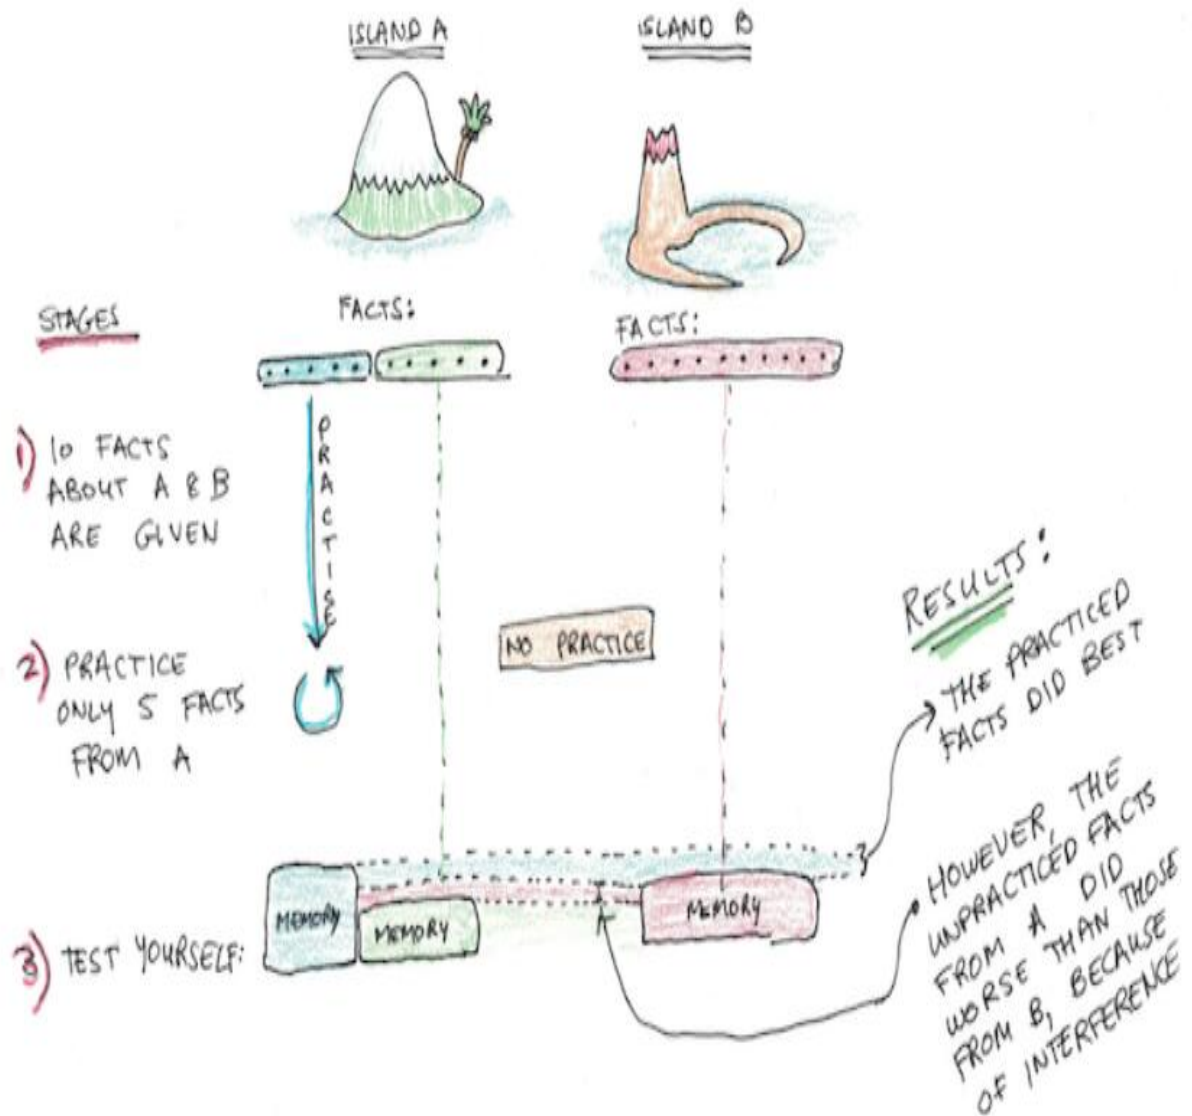 ISLAND A
ISLAND B
STAGES
FACTS:
FACTS:
1) 10 FACTS
ABOUT A & B
ARE GIVEN
PRACTISE
2) PRACTICE
ONLY 5 FACTS
FROM A
NO PRACTICE
3) TEST YOURSELF:
MEMORY
MEMORY
MEMORY
RESULTS:
THE PRACTICED
FACTS DID BEST
HOWEVER, THE
UNPRACTICED FACTS
FROM A DID
WORSE THAN THOSE
FROM B, BECAUSE
OF INTERFERENCE